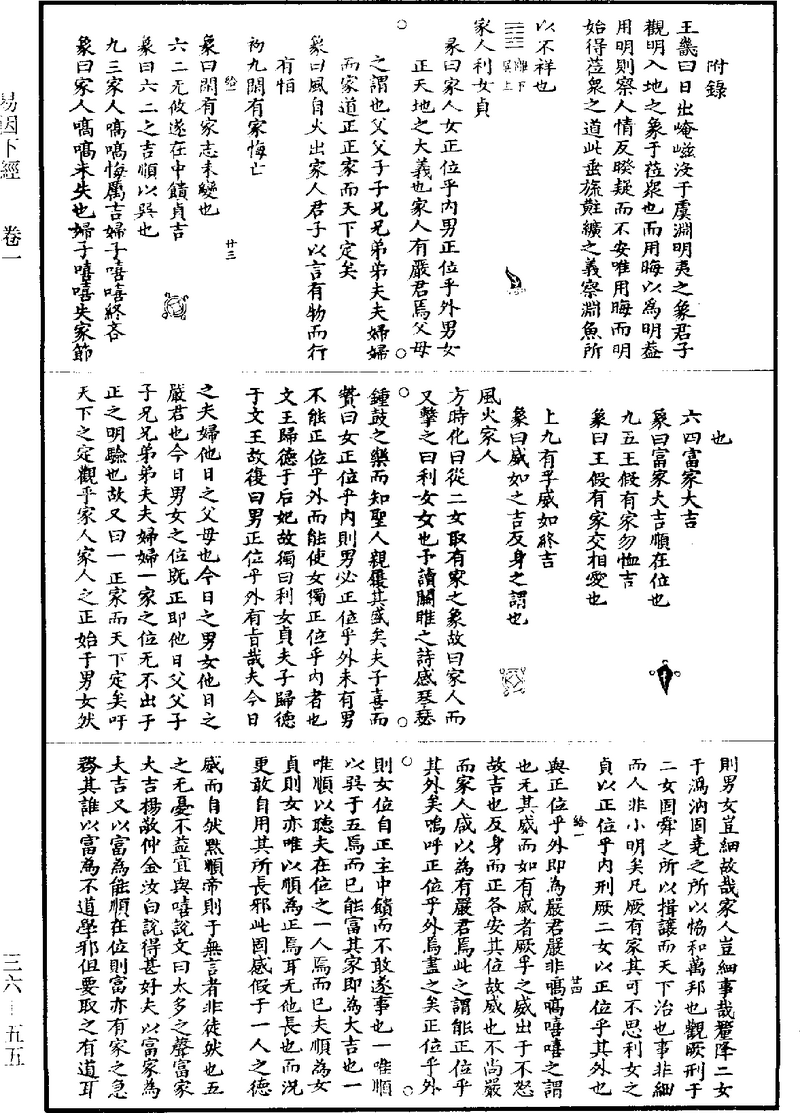 易因下經　卷一
三六—五五
附錄
王畿曰日出崦嵫沒于虞淵明夷之象君子
觀明入地之象于莅眾也而用晦以為明葢
用明則察人情反睽疑而不安唯用晦而明
始得莅眾之道此垂旒黈纊之義察淵魚所
以不祥也
離下
巽上
家人利女貞
彖曰家人女正位乎內男正位乎外男女
正天地之大義也家人有嚴君焉父母
之謂也父父子子兄兄弟弟夫夫婦婦
而家道正正家而天下定矣
象曰風自火出家人君子以言有物而行
有恒
初九閑有家悔亡
給一
廿三
象曰閑有家志未變也
六二无攸遂在中饋貞吉
象曰六二之吉順以巽也
九三家人嗃嗃悔厲吉婦子嘻嘻終吝
象曰家人嗃嗃未失也婦子嘻嘻失家節
也
六四富家大吉
象曰富家大吉順在位也
九五王假有家勿恤吉
象曰王假有家交相愛也
上九有孚威如終吉
象曰威如之吉反身之謂也
風火家人
方時化曰從二女取有家之象故曰家人而
又擊之曰利女女也予讀關雎之詩感琴瑟
鍾鼓之樂而知聖人親履其盛矣夫子喜而
贊曰女正位乎內則男必正位乎外未有男
不能正位乎外而能使女獨正位乎內者也
文王歸德于后妃故獨曰利女貞夫子歸德
于文王故復曰男正位乎外有旨哉夫今日
之夫婦他日之父母也今日之男女他日之
嚴君也今日男女之位既正即他日父父子
子兄兄弟弟夫夫婦婦一家之位无不出于
正之明驗也故又曰一正家而天下定矣吁
天下之定觀乎家人家人之正始于男女然
則男女豈細故哉家人豈細事哉釐降二女
于溈汭固堯之所以恊和萬邦也觀厥刑于
二女固舜之所以揖讓而天下治也事非細
而人非小明矣凡厥有家其可不思利女之
貞以正位乎內刑厥二女以正位乎其外也
給一
廿四
與正位乎外即為嚴君嚴非嗃嗃嘻嘻之謂
也无其威而如有威者厥孚之威出于不怒
故吉也反身而正各安其位故威也不尚嚴
而家人咸以為有嚴君焉此之謂能正位乎
其外矣嗚呼正位乎外焉盡之矣正位乎外
則女位自正主中饋而不敢遂事也一唯順
以巽于五焉而已能富其家即為大吉也一
唯順以聽夫在位之一人焉而已夫順為女
貞則女亦唯以順為正焉耳无他長也而況
更敢自用其所長邪此固感假于一人之德
威而自然默順帝則于無言者非徒然也五
之无憂不益宜與嘻說文曰太多之聲富家
大吉楊敬仲金汝白說得甚好夫以富家為
大吉又以富為能順在位則富亦有家之急
務其誰以富為不道學邪但要取之有道耳